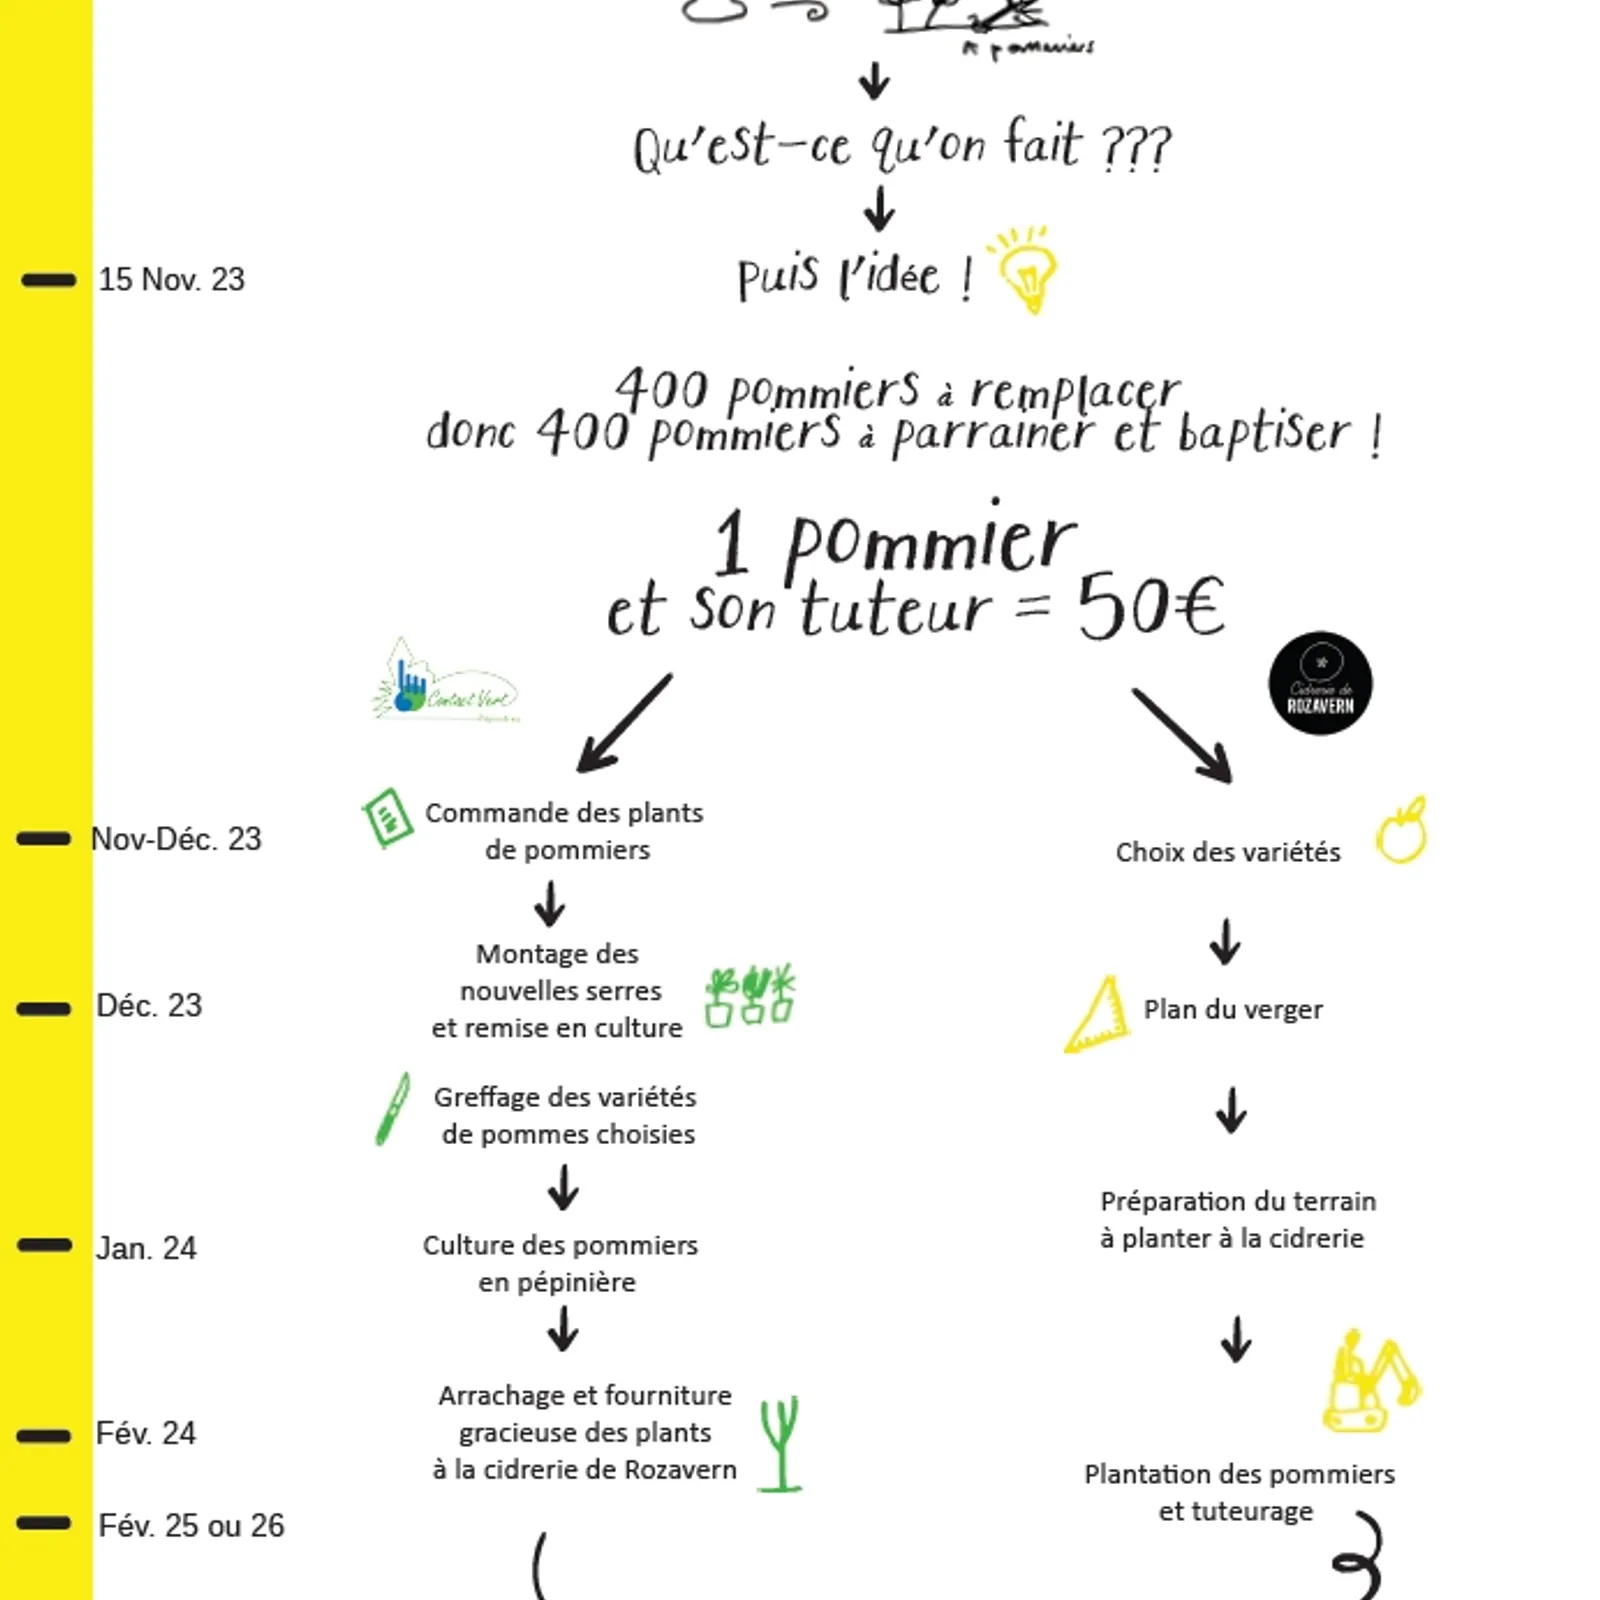 pommiers
Qu'est-ce qu'on fait ???
15 Nov. 23
Puis l'idée !
400 pommiers à remplacer
donc 400 pommiers à parrainer et baptiser !
1 pommier
et son tuteur = 50€
Contact Vert
Cidrerie de
ROZAVERN
Nov-Déc. 23
Commande des plants
de pommiers
Choix des variétés
Déc. 23
Montage des
nouvelles serres
et remise en culture
Plan du verger
Greffage des variétés
de pommes choisies
Jan. 24
Culture des pommiers
en pépinière
Préparation du terrain
à planter à la cidrerie
Fév. 24
Arrachage et fourniture
gracieuse des plants
à la cidrerie de Rozavern
Plantation des pommiers
et tuteurage
Fév. 25 ou 26